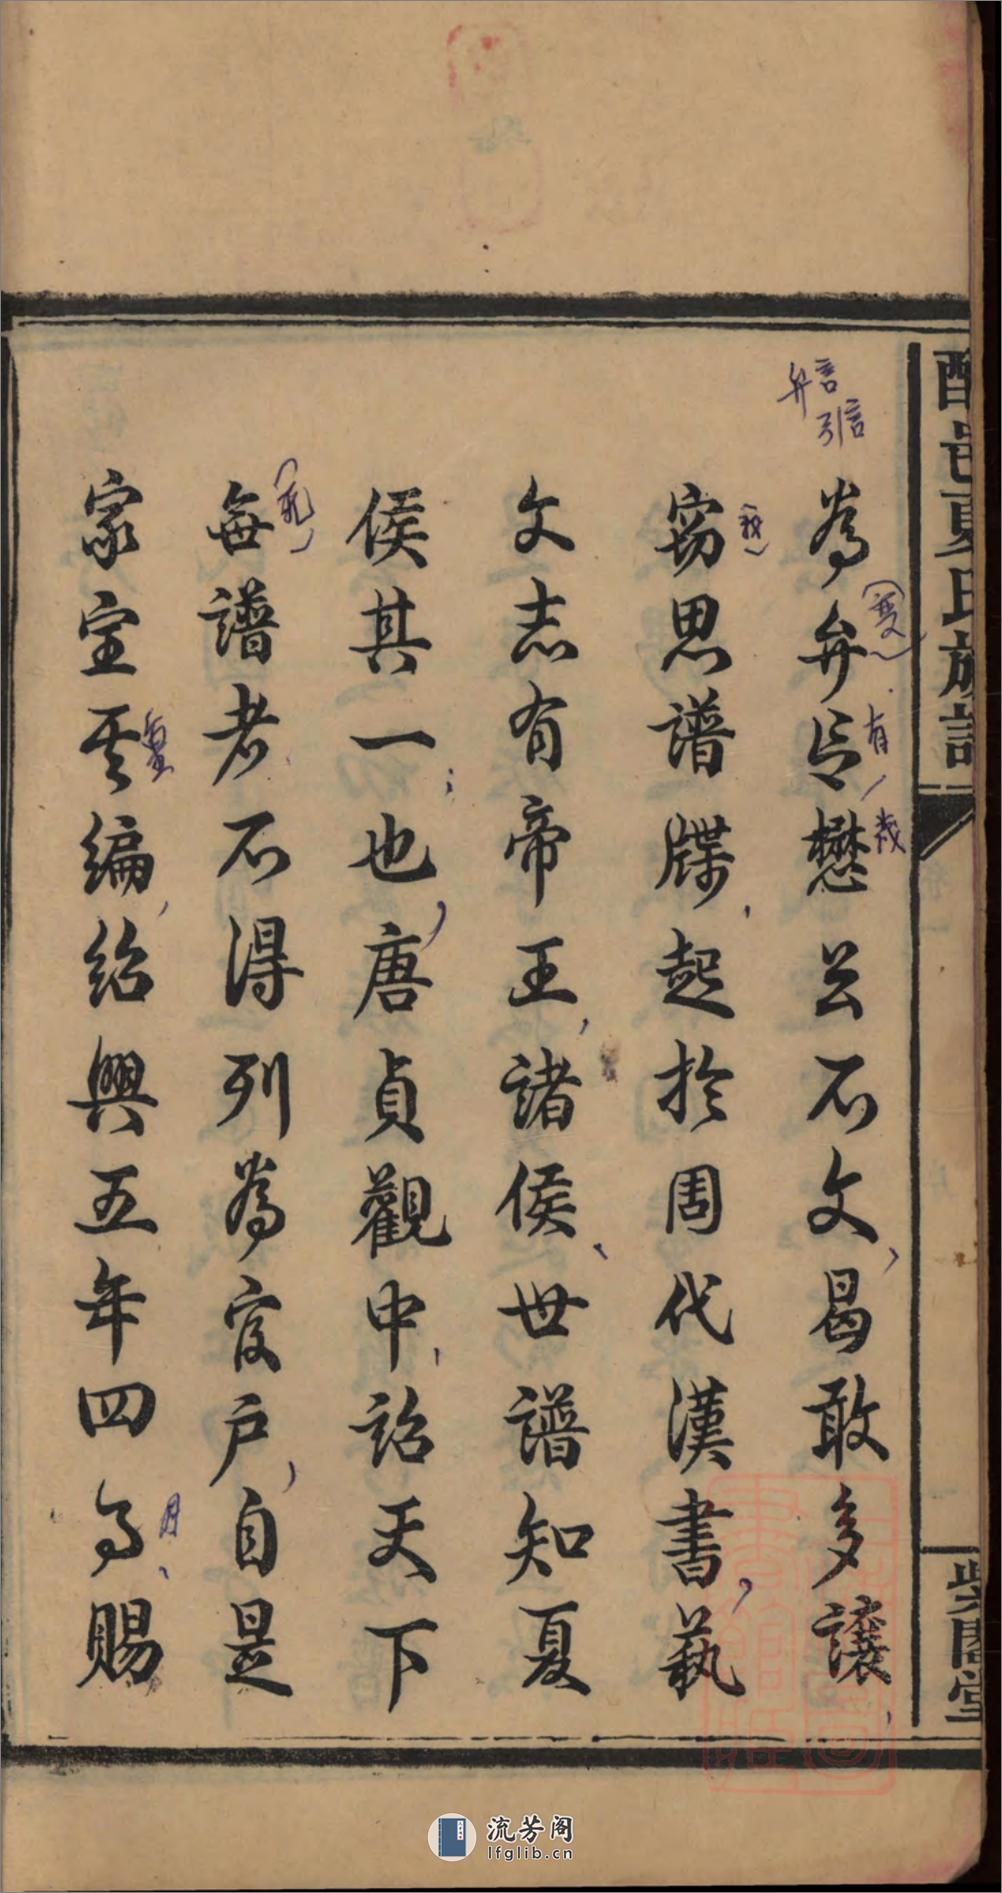 夏氏族譜
為弁言懋公不文曷敢多讓
竊思譜牒起於周代漢書藝
文志有帝王諸侯世譜知夏
侯其一也唐貞觀中詔天下
每譜者不得列為官戶自是
家宝其編紹興五年四月賜
弁言
引言
有
月
流芳阁
lfglib.cn